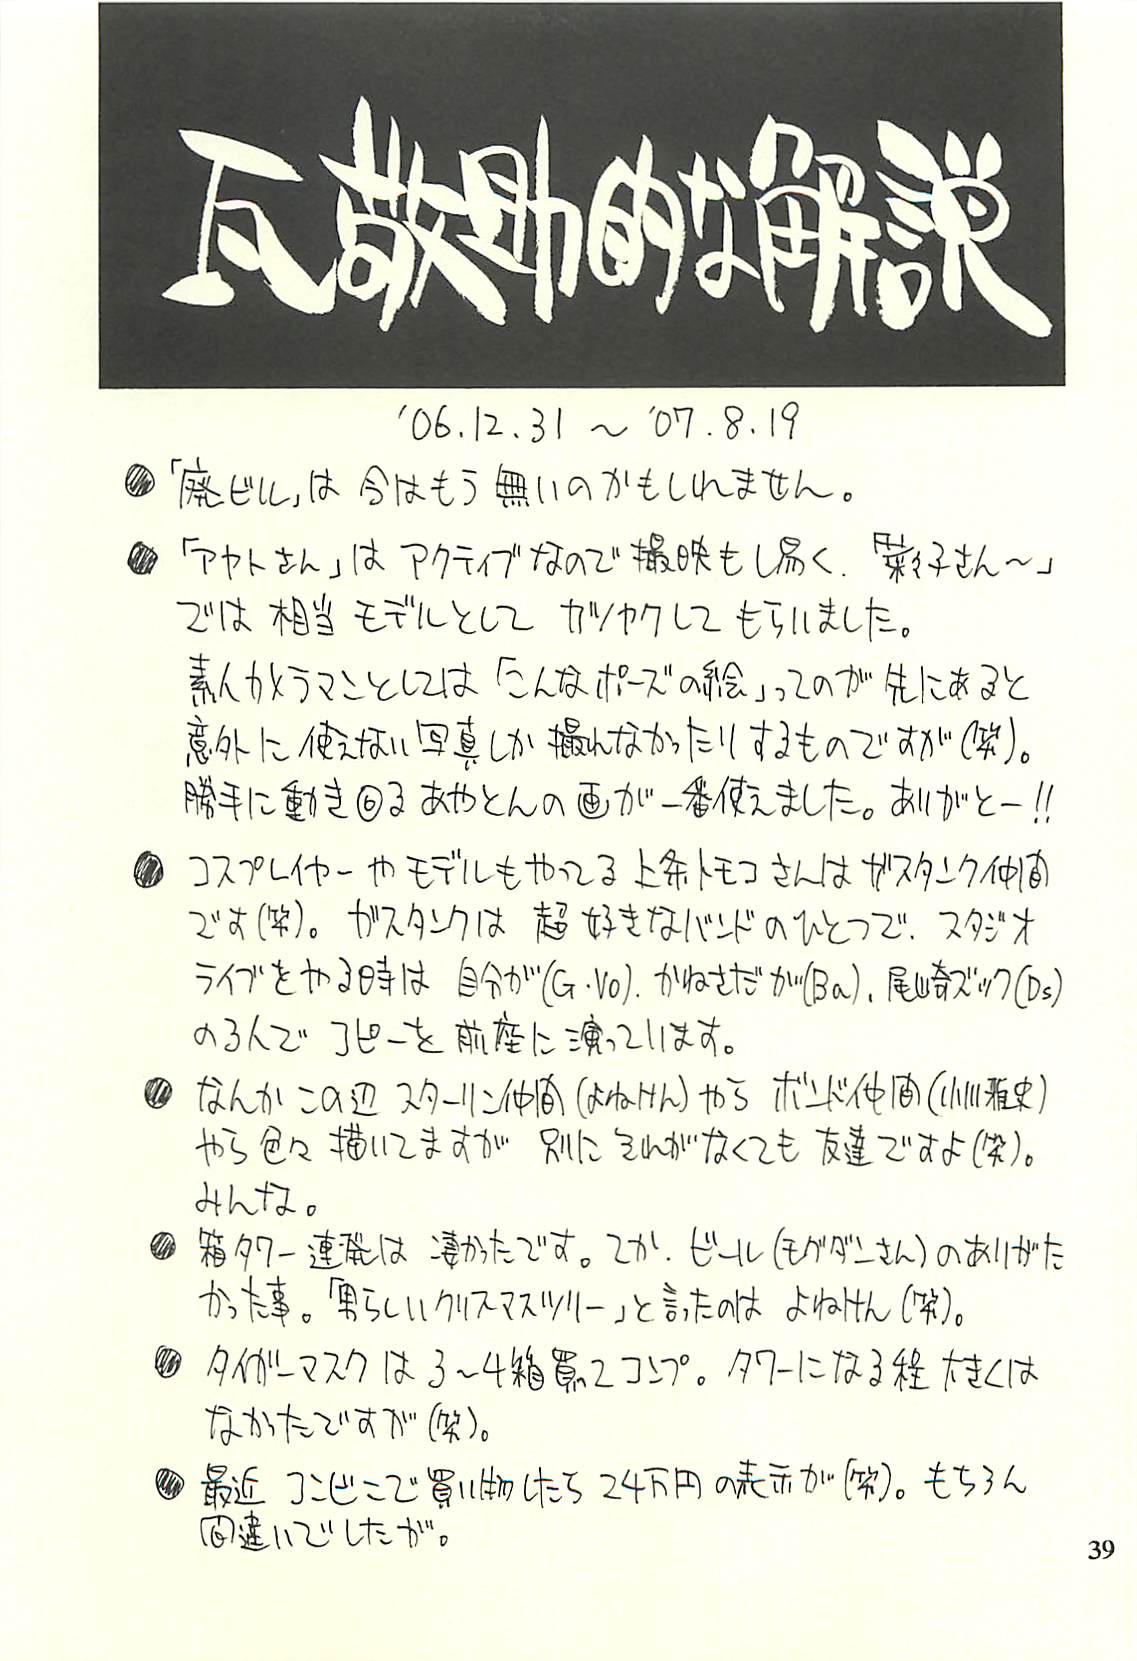 瓦敬助的な解説
'06.12.31 〜 '07.8.19
●「廃ビル」は 今はもう 無いのかもしれません。
●「アヤトさん」は アクティブなので 撮映もし易く、「菜々子さん〜」
では 相当 モデルとして カツヤクして もらいました。
素人カメラマンとしては「こんなポーズの絵」ってのが 先にあると
意外に 使えない 写真しか 撮れなかったりするものですが(笑)。
勝手に動き回る あやとんの 画が 一番使えました。ありがとー!!
● コスプレイヤーや モデルもやってる 上条トモコさんは ガスタンク仲間
です(笑)。 ガスタンクは 超 好きなバンドのひとつで、スタジオ
ライブをやる時は 自分が(G・Vo)、かねさだが(Ba)、尾山奇ズック(Ds)
のるんで コピーを 前座に 演っています。
● なんか この辺 スターリン仲間(よねけん)やら ボンド仲間(小川雅史)
やら 色々 描いてますが 別に それがなくても 友達ですよ(笑)。
みんな。
● 箱タワー 連発は 凄かったです。てか、ビール(モグダンさん)のありがた
かった事。「男らしいクリスマスツリー」と言ったのは よねけん(笑)。
● タイガーマスクは 3〜4箱買ってコンプ。タワーになる程 大きくは
なかったですが(笑)。
● 最近 コンビニで 買い物したら 24万円の表示が(笑)。もちろん
間違いでしたが。
39